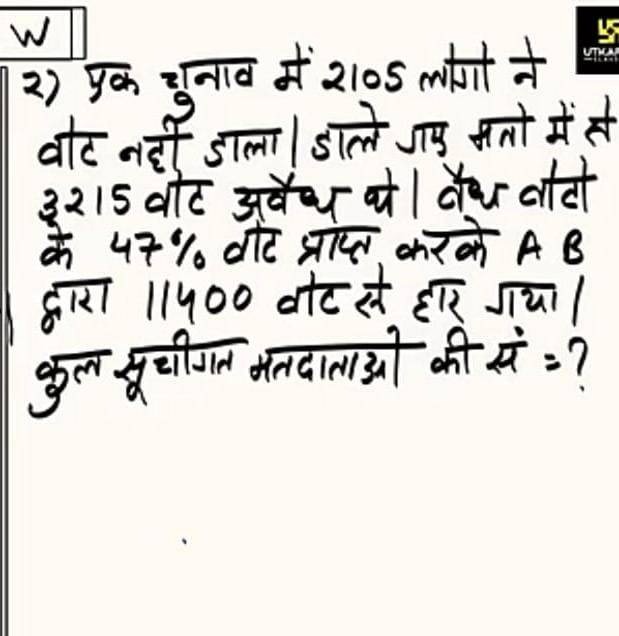 W
UTKAR
2) एक चुनाव में 2105 लोगो ने
वोट नही डाला | डाले गए मतो में से
3215 वोट अवैध थे | वैध वोटो
के 47% वोट प्राप्त करके A B
द्वारा 11400 वोट से हार गया |
कुल सूचीगत मतदाताओ की सं = ?